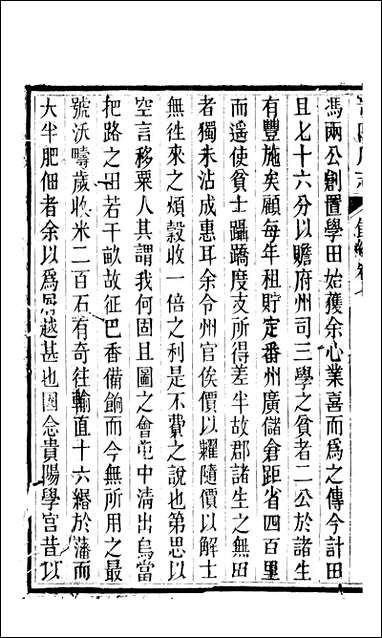 馮兩公創置學田始獲余心業喜而爲之傳今計田
且七十六分以贍府州司三學之貧者二公於諸生
有豐施矣顧每年租貯定番州廣儲倉距省四百里
而遥使貧士躡蹻度支所得差半故郡諸生之無田
者獨未沾成惠耳余令州官俟價以糶隨價以解士
無徃來之煩穀收一倍之利是不費之說也弟思以
空言移粟人其謂我何固且圖之會屯中清出烏當
把路之田若干畝故征巴香備餉而今無所用之最
號沃疇歲收米二百石有奇徃輸直十六緡於藩而
大半肥佃者余以爲常越甚也因念貴陽學宫昔以